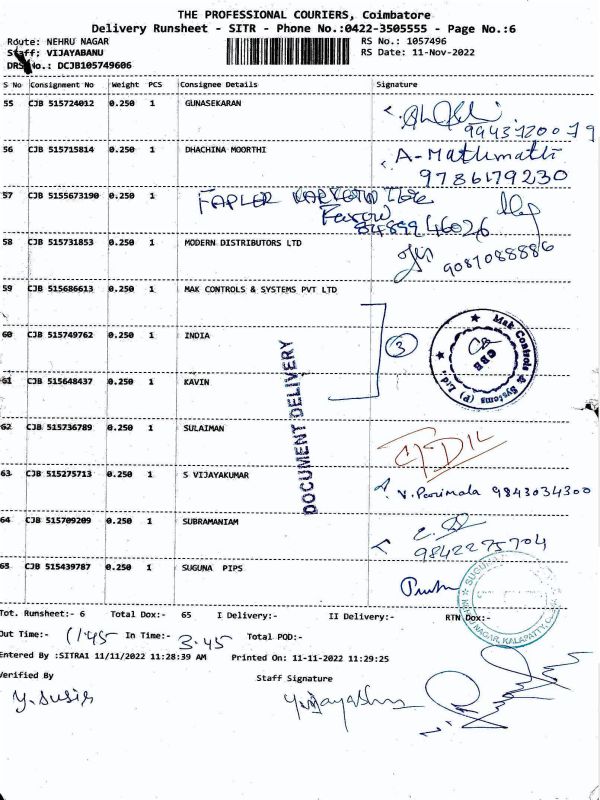 THE PROFESSIONAL COURIERS, Coimbatore
Delivery Runsheet - SITR - Phone No.:0422-3505555 - Page No.:6
Route: NEHRU NAGAR RS No.: 1057496
Staff: VIJAYABANU RS Date: 11-Nov-2022
DRS No.: DCJB105749606
S No Consignment No Weight PCS Consignee Details Signature
55 CJB 515724012 0.250 1 GUNASEKARAN
9943720079
56 CJB 515715814 0.250 1 DHACHINA MOORTHI A-Mathumathi
9786179230
57 CJB 5155673190 0.250 1
8489946026
58 CJB 515731853 0.250 1 MODERN DISTRIBUTORS LTD
9087088886
59 CJB 515686613 0.250 1 MAK CONTROLS & SYSTEMS PVT LTD
60 CJB 515749762 0.250 1 INDIA 3
Mak Controls & Systems (P) Ltd
CBB
61 CJB 515648437 0.250 1 KAVIN
DOCUMENT DELIVERY
62 CJB 515736789 0.250 1 SULAIMAN
63 CJB 515275713 0.250 1 S VIJAYAKUMAR
V. Parimala 9843034300
64 CJB 515709209 0.250 1 SUBRAMANIAM
9842275704
65 CJB 515439787 0.250 1 SUGUNA PIPS
SUGUNA
NAGAR, KALAPATTY
Tot. Runsheet:- 6 Total Dox:- 65 I Delivery:- II Delivery:- RTN Dox:-
Out Time:- 1.45 In Time:- 3.45 Total POD:-
Entered By :SITRA1 11/11/2022 11:28:39 AM Printed On: 11-11-2022 11:29:25
Verified By Staff Signature
Y. Susir